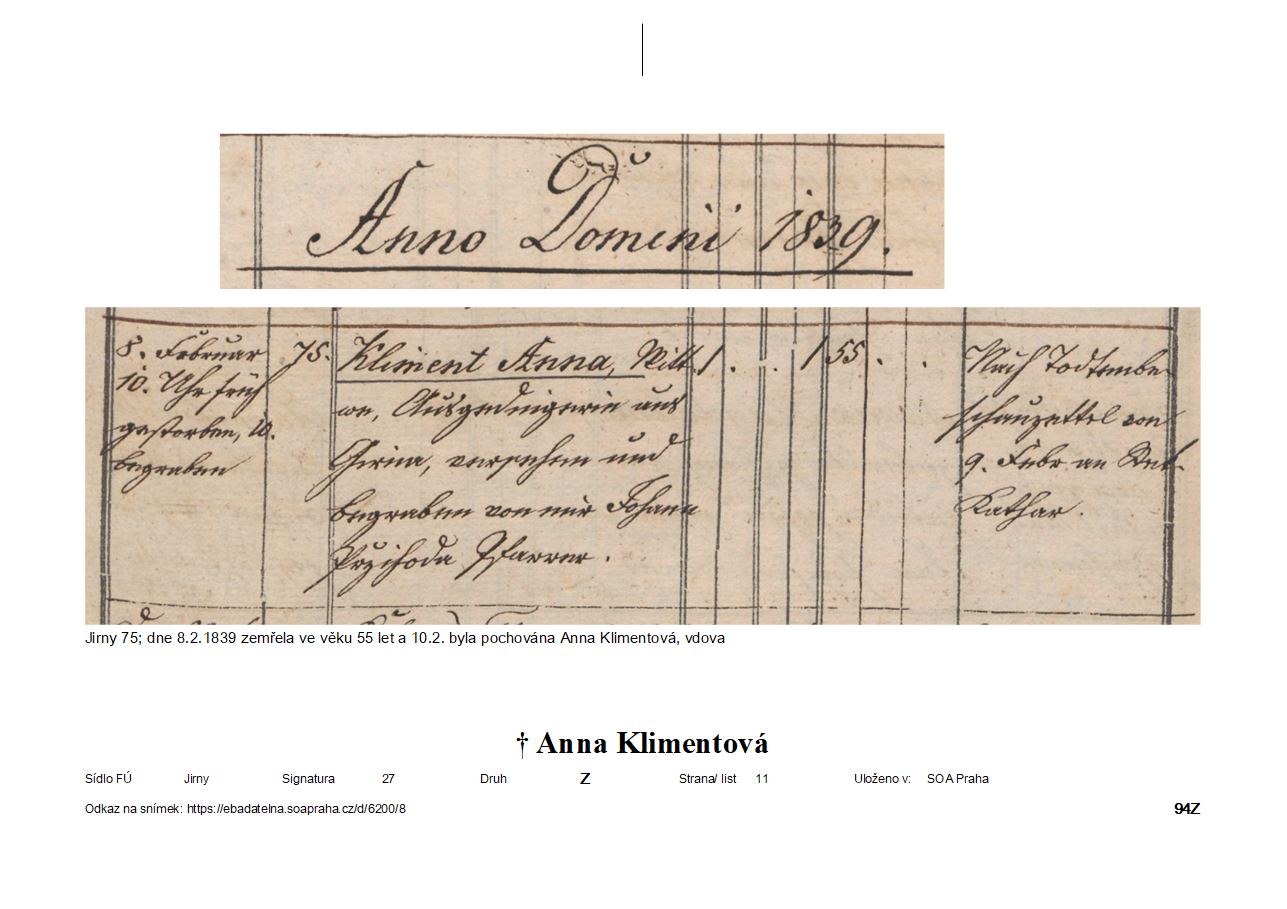 Anno Domini 1839.
8. Februar 75. Kliment Anna, Witt- 1 . . 1 55 . . Nach Todtenbe-
10. Uhr früh we, Ausgedingerin aus schauzettel von
gestorben, 10. Girna, versehen und 9. Febr an
begraben begraben von mir Johann Kathar.
Przihoda Pfarrer.
Jirny 75; dne 8.2.1839 zemřela ve věku 55 let a 10.2. byla pochována Anna Klimentová, vdova
† Anna Klimentová
Sídlo FÚ Jirny Signatura 27 Druh Z Strana/ list 11 Uloženo v: SOA Praha
Odkaz na snímek: https://ebadatelna.soapraha.cz/d/6200/8 94Z